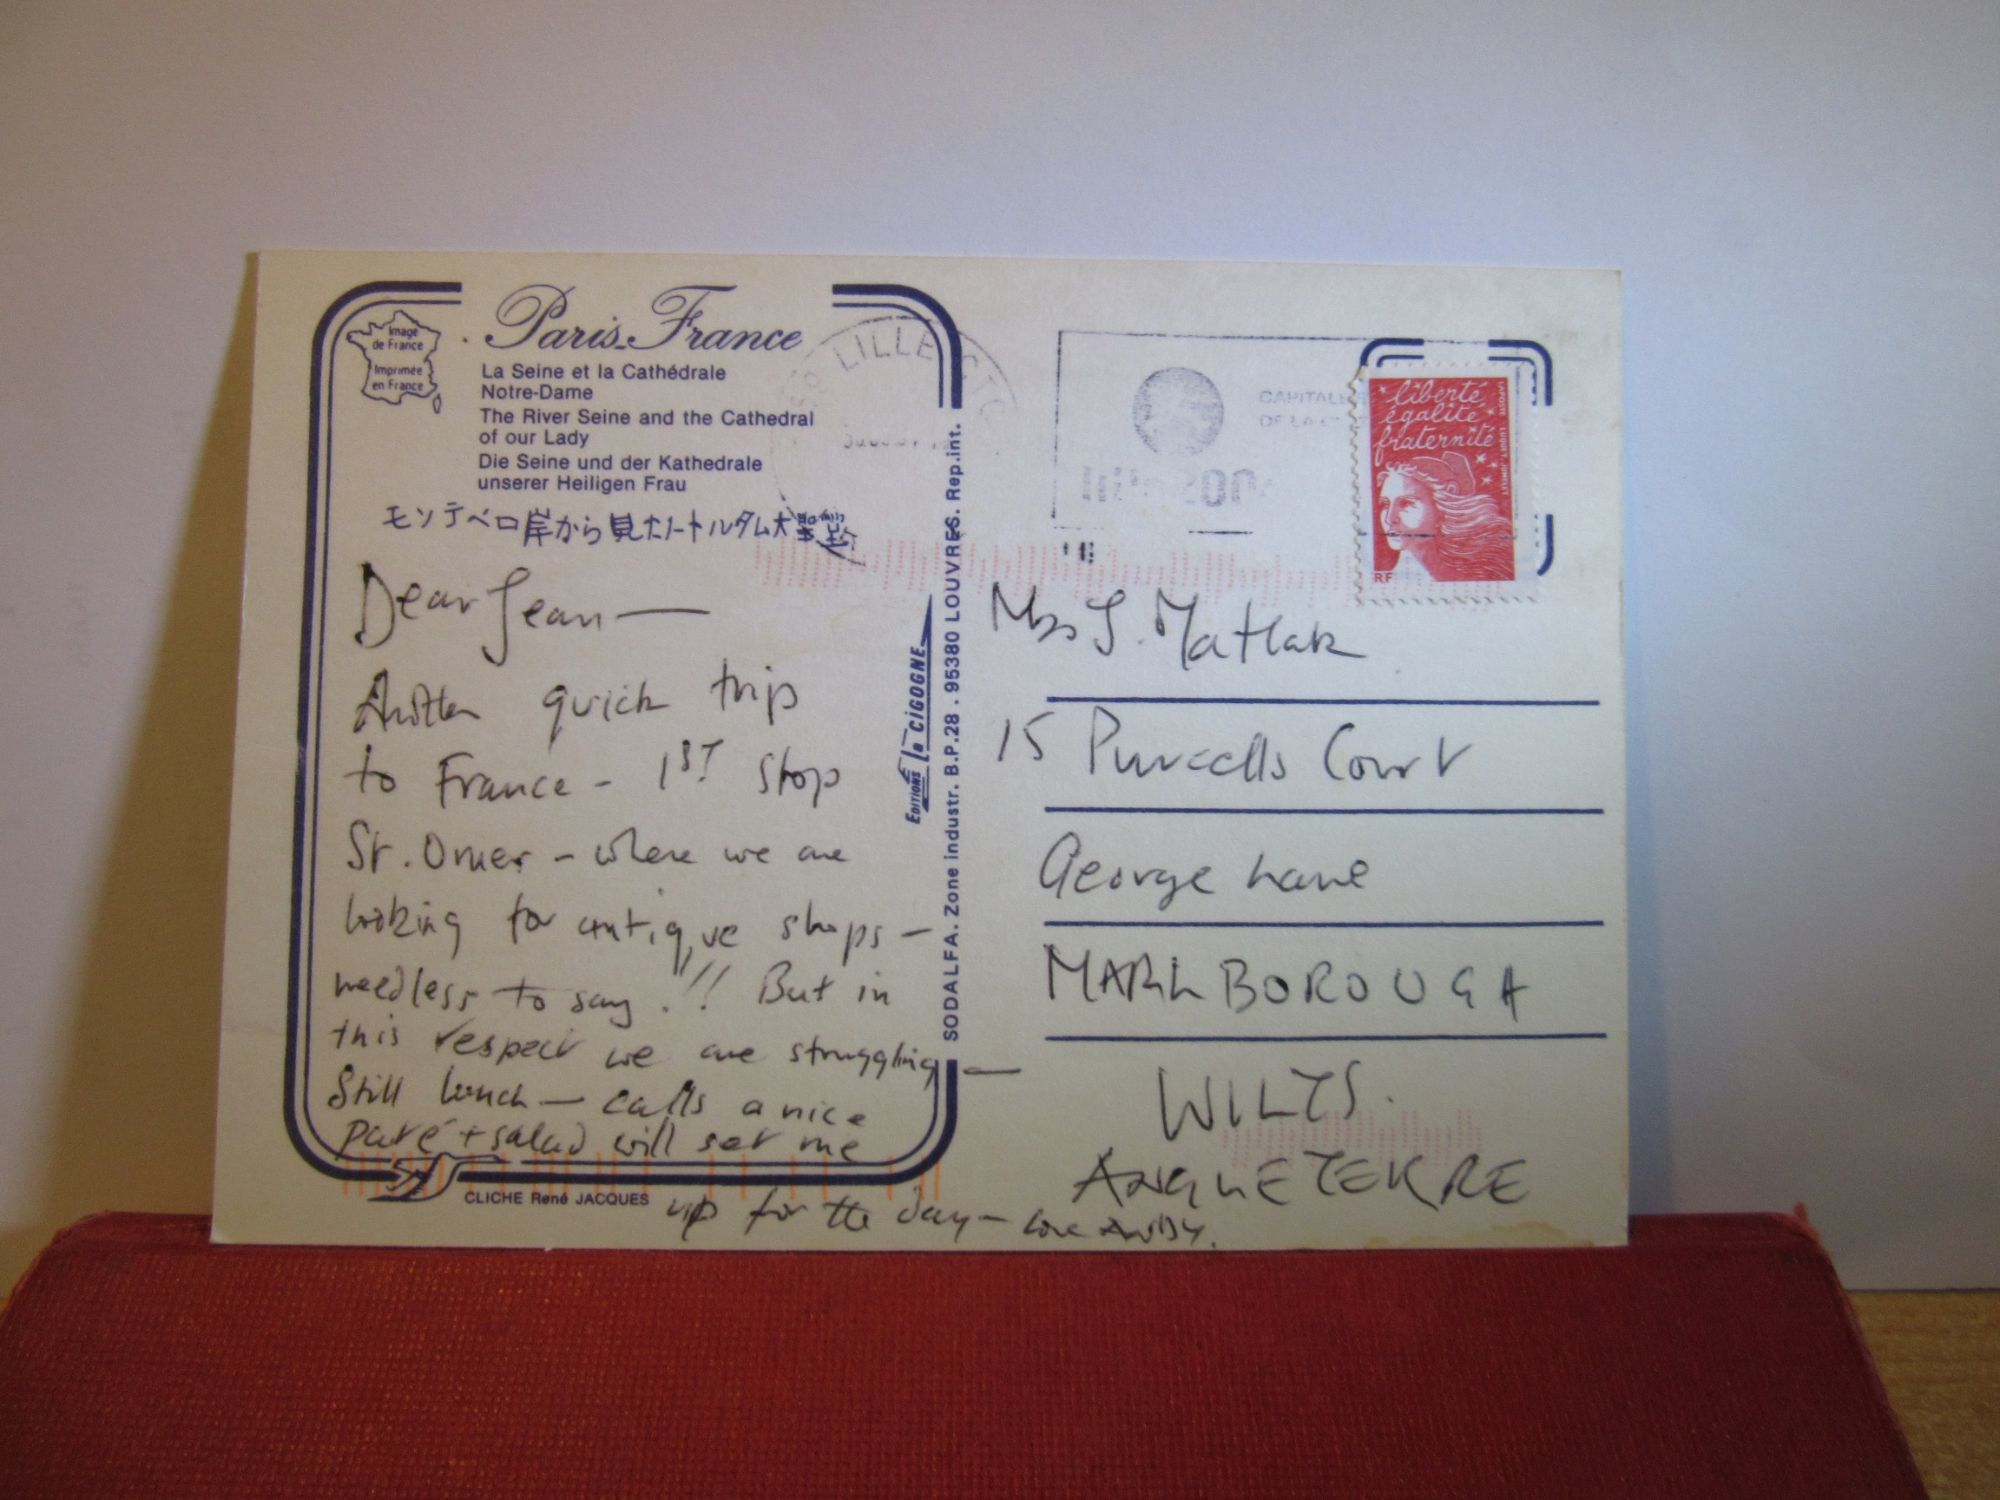 Image
de France
Imprimée
en France
Paris-France
La Seine et la Cathédrale
Notre-Dame
The River Seine and the Cathedral
of our Lady
Die Seine und der Kathedrale
unserer Heiligen Frau
モンテベロ岸から見たノートルダム大
Dear Jean —
Another quick trip
to France - 1ST stop
St. Omer - where we are
looking for antique shops —
needless to say!! But in
this respect we are struggling —
Still lunch — calls a nice
paté + salad will set me
up for the day - love
CLICHE René JACQUES
EDITIONS la CIGOGNE
SODALFA. Zone industr. B.P.28. 95380 LOUVRES. Rep.int.
LILLE CTC
CAPITALE
DE LA
liberté
égalité
fraternité
LA POSTE LUQUET, JUMELET
RF
J. Matlak
15 Purcells Court
George Lane
MARLBOROUGH
WILTS.
ANGLETERRE